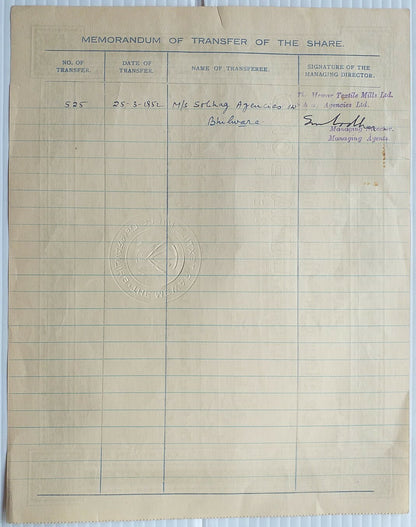 MEMORANDUM OF TRANSFER OF THE SHARE.
NO. OF TRANSFER.
DATE OF TRANSFER.
NAME OF TRANSFEREE.
SIGNATURE OF THE MANAGING DIRECTOR.
The Mewar Textile Mills Ltd.
525 25-3-1952 M/s Agencies Agencies Ltd.
Bhilwara
Managing Director.
Managing Agents.